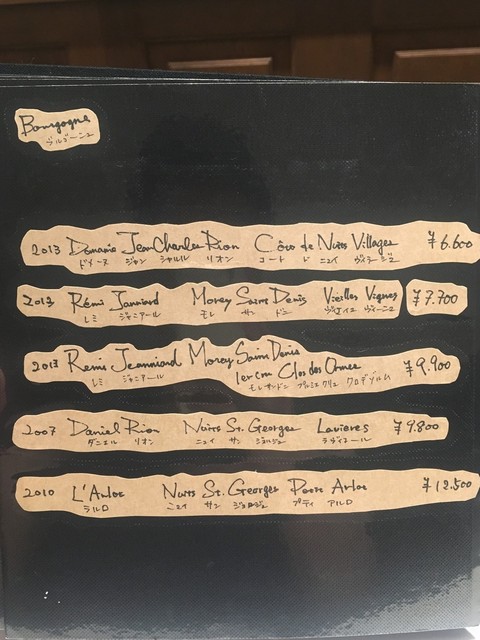 Bourgogne
ブルゴーニュ
2013 Domaine Jean Charles Rion Côte de Nuits Villages ¥6.600
ドメーヌ ジャン シャルル リオン コート ド ニュイ ヴィラージュ
2013 Rémi Janniard Morey Saint Denis Vieilles Vignes ¥7.700
レミ ジャニアール モレ サン ドニ ヴィエイユ ヴィーニュ
2013 Remi Jeanniard Morey Saint Denis
1er cru Clos des Ormes ¥9.900
レミ ジャニアール モレサンドニ プルミエ クリュ クロデゾルム
2007 Daniel Rion Nuits St. Georges Lavieres ¥9.800
ダニエル リオン ニュイ サン ジョルジュ ラヴィエール
2010 L'Arlot Nuits St. Georges Petit Arlot ¥12.500
ラルロ ニュイ サン ジョルジュ プティ アルロ